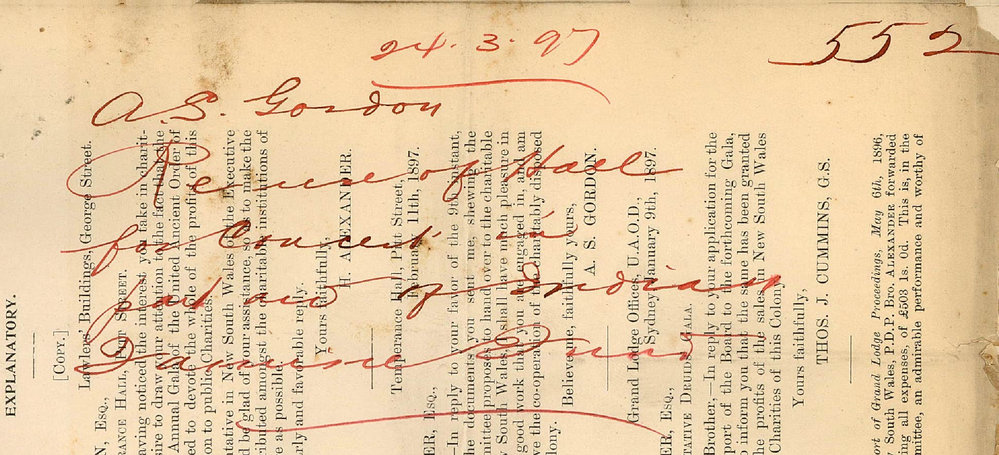 24.3.97
552
A.S. Gordon
Re use of Hall
for Concert in
aid of Indian
Famine Fund
EXPLANATORY.
[COPY.]
Lawless' Buildings, George Street.
N, ESQ.,
RANCE HALL, PITT STREET.
aving noticed the interest you take in charit-
sire to draw your attention to the fact that the
Annual Gala of the United Ancient Order of
ed to devote the whole of the profit of this
on to public Charities.
ntative in New South Wales of the Executive
d be glad of your assistance, so as to make the
ributed amongst the charitable institutions of
e as possible.
arly and favorable reply.
Yours faithfully,
H. ALEXANDER.
Temperance Hall, Pitt Street,
February 11th, 1897.
ER, ESQ.,
—In reply to your favor of the 9th instant,
he documents you sent me, shewing the
mmittee proposes to hand over to the charitable
South Wales, I shall have much pleasure in
good work that you are engaged in, and am
ve the co-operation of the charitably disposed
olony.
Believe me, faithfully yours,
A. S. GORDON.
Grand Lodge Offices, U.A.O.D.,
Sydney, January 9th, 1897.
ER, ESQ.,
TATIVE DRUIDS GALA.
Brother,—In reply to your application for the
port of the Board to the forthcoming Gala,
o inform you that the same has been granted
the profits of the sales in New South Wales
Charities of this Colony
Yours faithfully,
THOS. J. CUMMINS, G.S.
ort of Grand Lodge Proceedings, May 6th, 1896,
South Wales, P.D.P. Bro. ALEXANDER forwarded
ing all expenses, of £503 1s. 0d. This is, in the
mittee, an admirable performance and worthy of